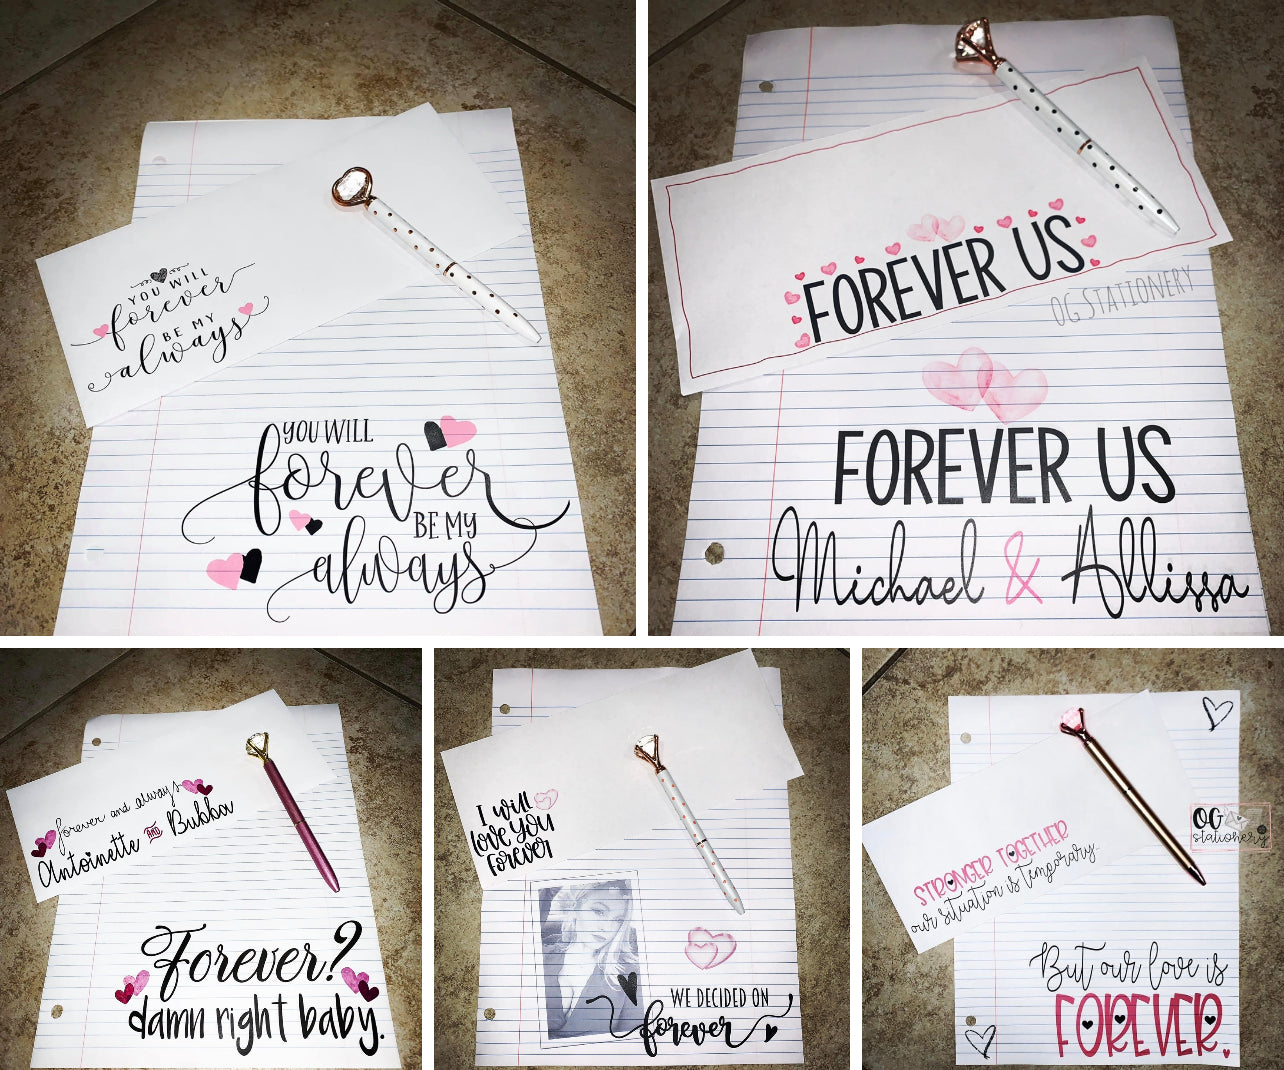 YOU WILL
forever
BE MY
always
YOU WILL
forever
BE MY
always
FOREVER US
OG STATIONERY
FOREVER US
Michael & Allissa
forever and always
Antoinette AND Bubba
Forever?
damn right baby.
I will
love you
Forever
WE DECIDED ON
forever
STRONGER TOGETHER
our situation is temporary
OG
stationery
But our love is
FOREVER.